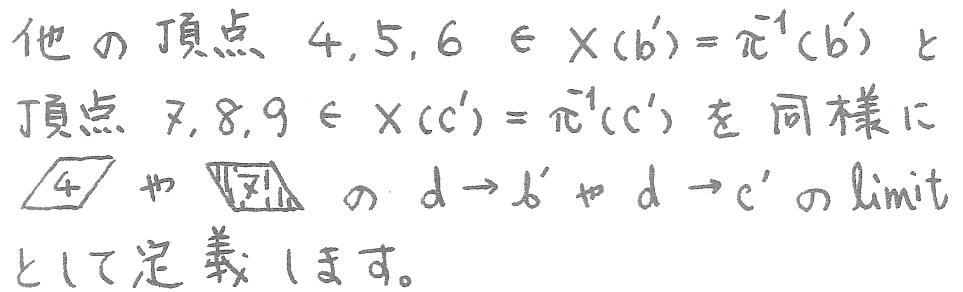 他の頂点 4, 5, 6 ∈ X(b′) = π⁻¹(b′) と
頂点 7, 8, 9 ∈ X(c′) = π⁻¹(c′) を同様に
4 や 7 の d → b′ や d → c′ の limit
として定義します。